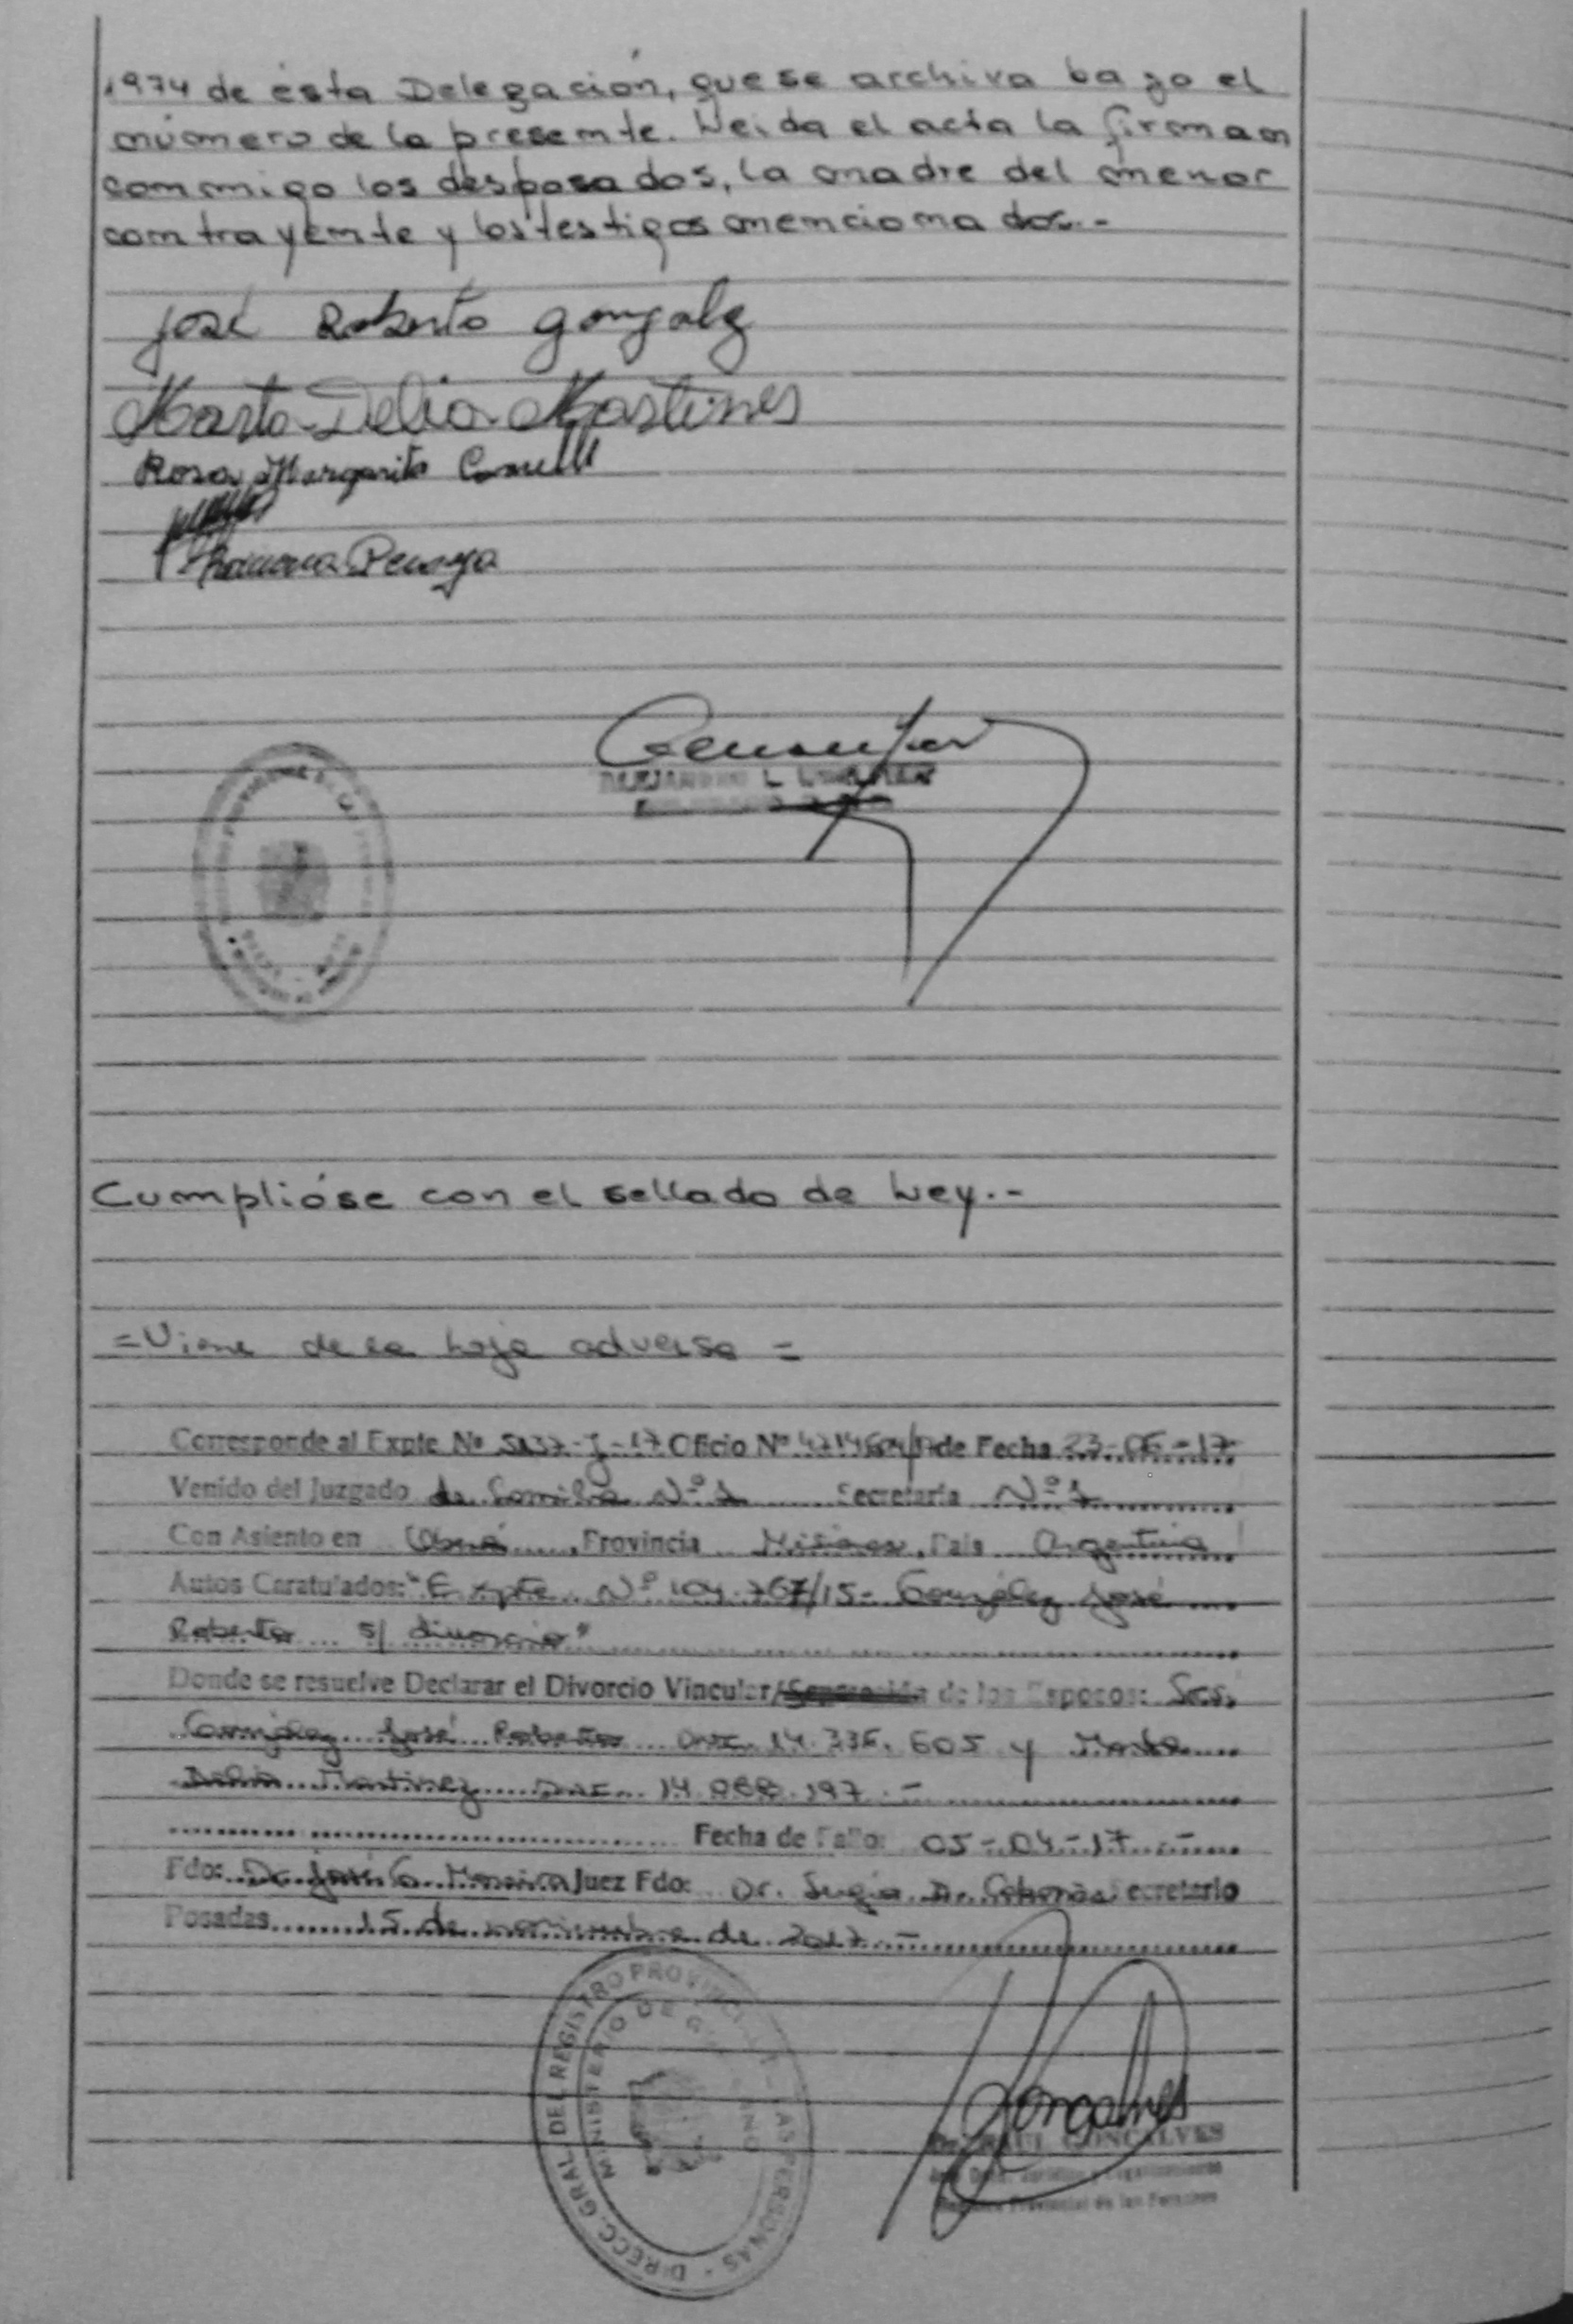 1974 de ésta Delegación, que se archiva bajo el
número de la presente. Leída el acta la firman
conmigo los desposados, la madre del menor
contrayente y los testigos mencionados.-
José Roberto Gonzalz
Marta Delia Martines
Rosa Margarita
Ramona
ALEJANDRO L
Cumplióse con el sellado de Ley.-
=Viene de la hoja adversa =
Corresponde al Expte Nº 5137-J-17 Oficio Nº de Fecha 23-06-17
Venido del Juzgado de Familia Nº 1 Secretaría Nº 1
Con Asiento en Oberá, Provincia Misiones, País Argentina
Autos Caratulados: "Expte Nº 104.767/15- González José
Roberto s/ divorcio"
Donde se resuelve Declarar el Divorcio Vincular/Separación de los Esposos: Sres.
González José Roberto DNI. 14.336.605 y Marta
Delia Martinez DNI 14.868.197.-
Fecha de Fallo: 05-04-17.-
Fdo: Dr. José G. Moreira Juez Fdo: Dr. Secretario
Posadas 15 de noviembre de 2017.-
DIRECC. GRAL DEL REGISTRO PROVINCIAL DE LAS PERSONAS
MINISTERIO DE GOBIERNO
Goncalves
Dr. RAUL GONCALVES
Registro Provincial de las Personas